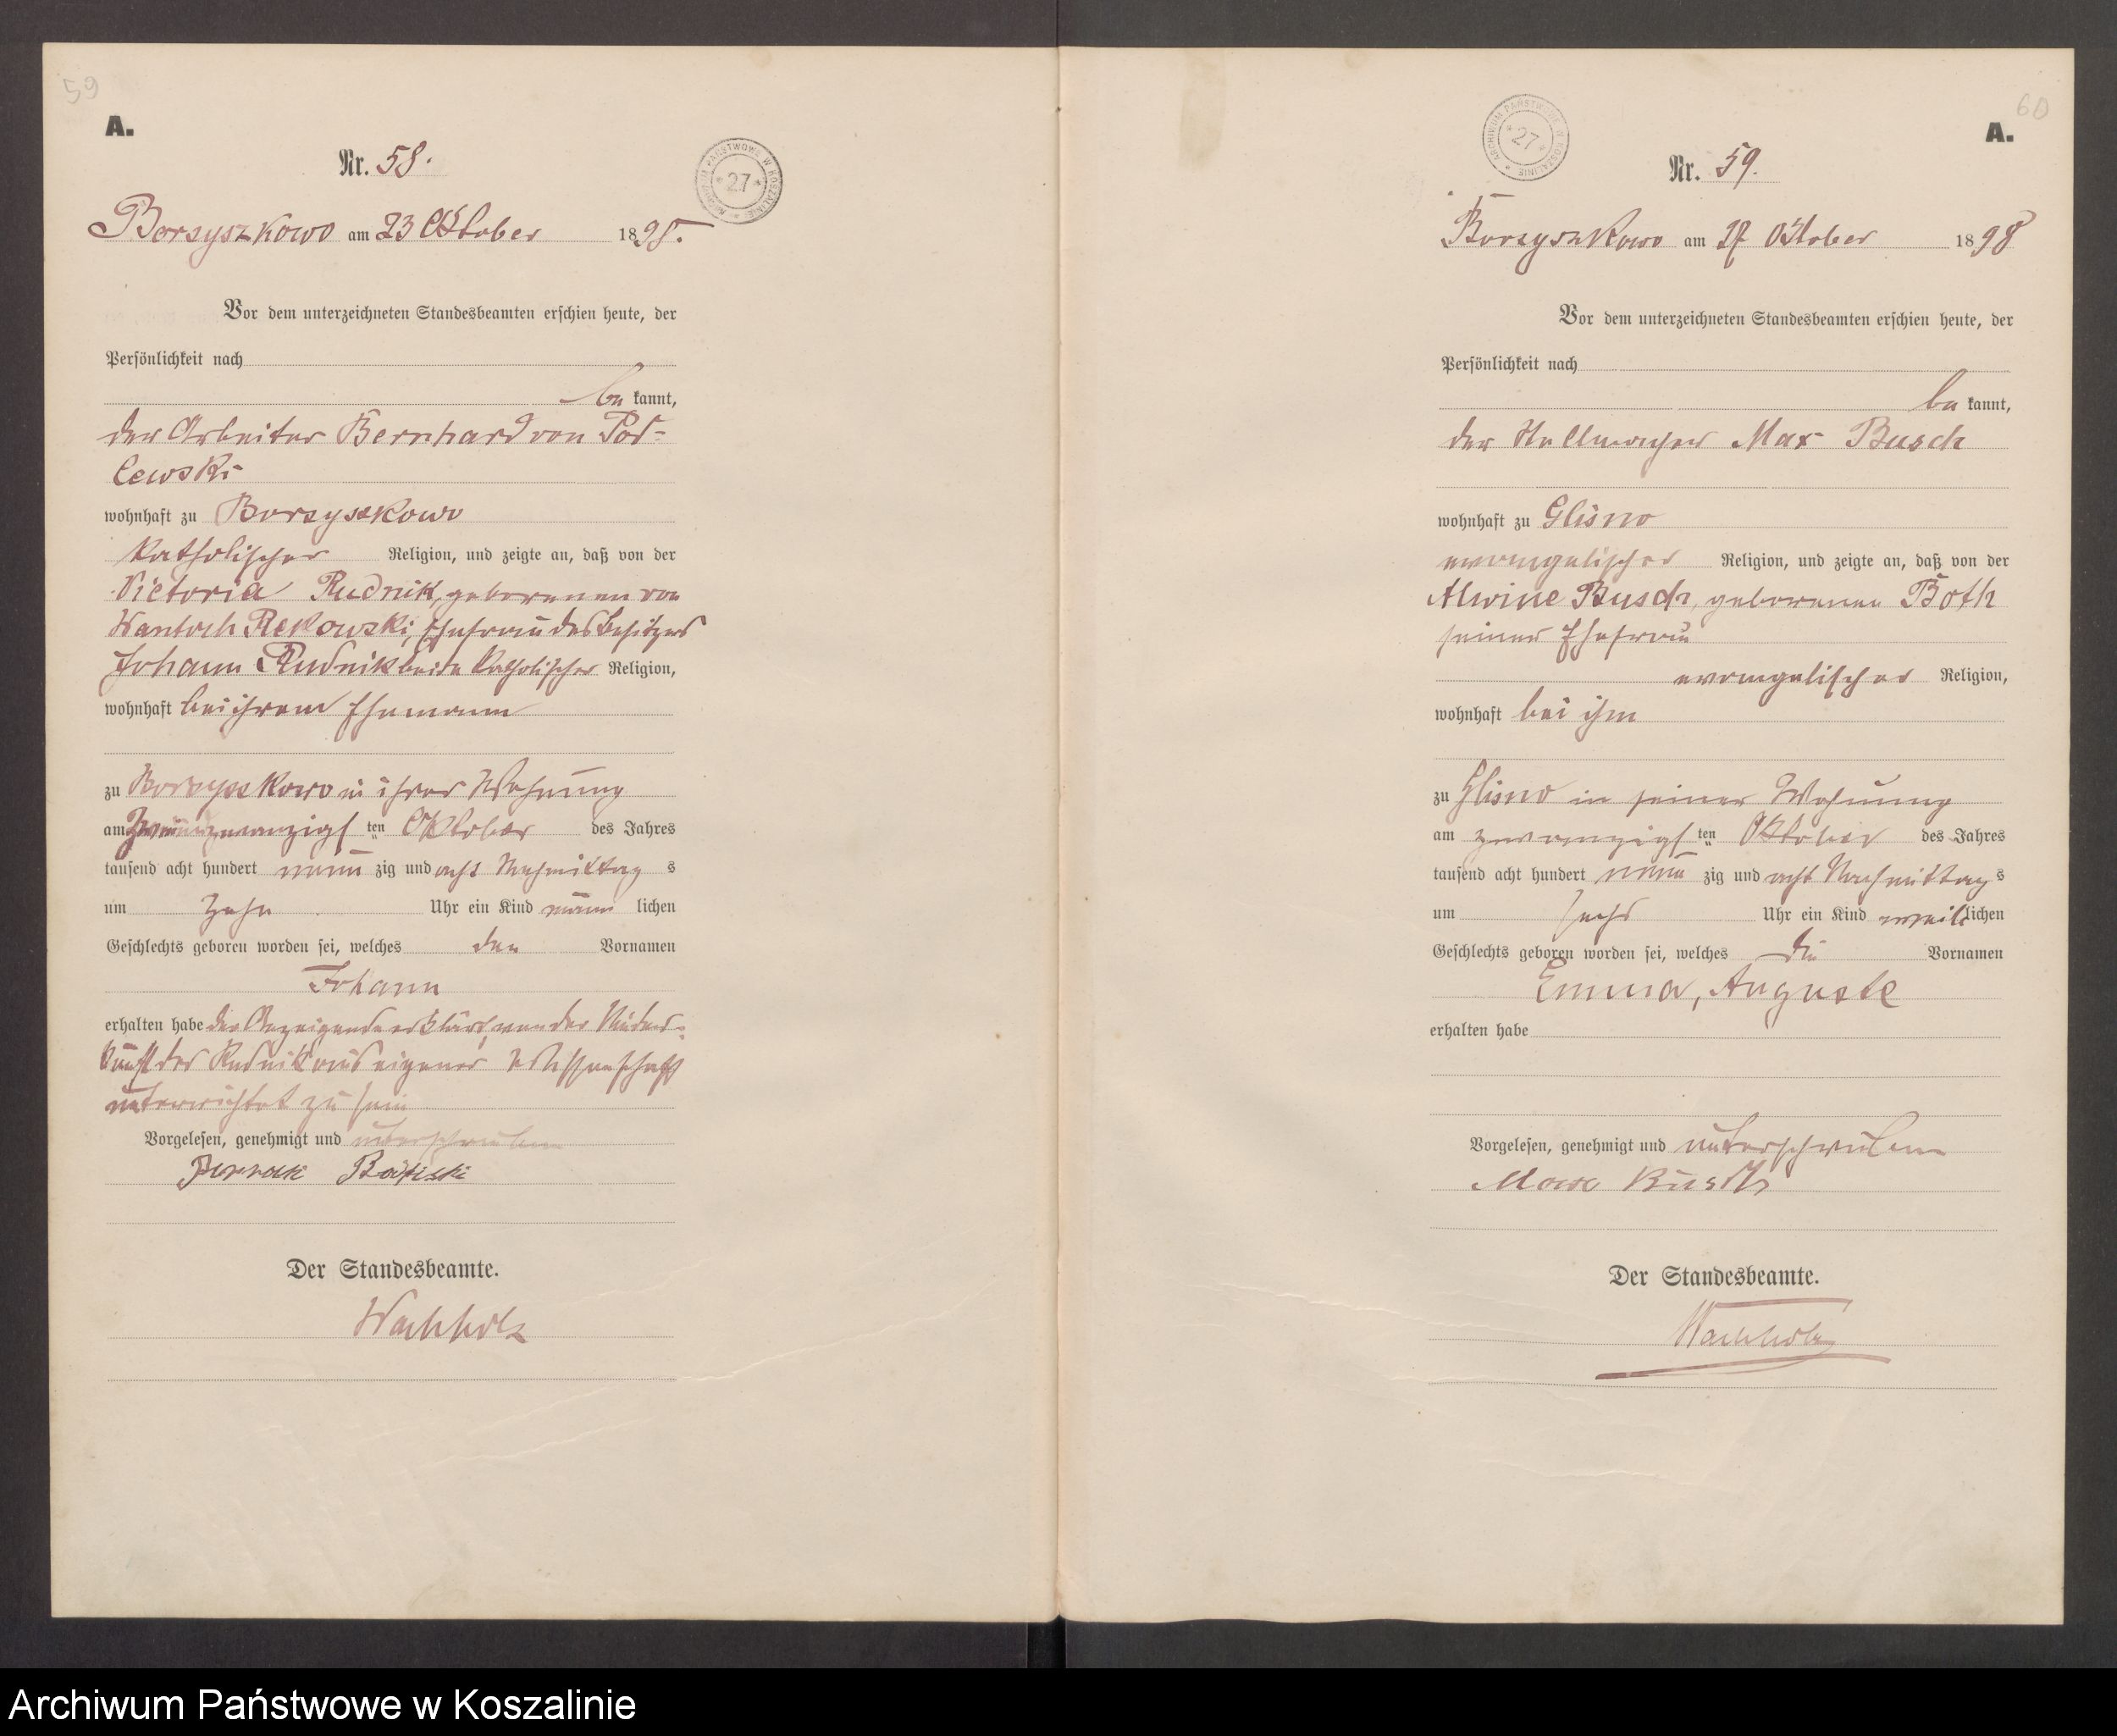 59
A.
Nr. 58.
ARCHIWUM PAŃSTWOWE W KOSZALINIE
* 27 *
Borzyszkowo am 23 Oktober 1898.
Vor dem unterzeichneten Standesbeamten erschien heute, der
Persönlichkeit nach
be kannt,
der Arbeiter Bernhard von Pod-
lewski
wohnhaft zu Borzyszkowo
katholischer Religion, und zeigte an, daß von der
Victoria Rudnik, geborenen von
Wantoch Rekowski, Ehefrau des Besitzers
Johann Rudnik beide katholischer Religion,
wohnhaft bei ihrem Ehemann
zu Borzyszkowo in ihrer Wohnung
am zwanzigs ten Oktober des Jahres
tausend acht hundert neun zig und acht Nachmittag s
um zehn Uhr ein Kind männ lichen
Geschlechts geboren worden sei, welches den Vornamen
Johann
erhalten habe der Anzeigende erklärt, von der Nieder-
kunft der Rudnik aus eigener Wissenschaft
unterrichtet zu sein
Vorgelesen, genehmigt und unterschrieben
Der Standesbeamte.
Wachholz
60
A.
Nr. 59.
ARCHIWUM PAŃSTWOWE W KOSZALINIE
* 27 *
Borzyszkowo am 27 Oktober 1898
Vor dem unterzeichneten Standesbeamten erschien heute, der
Persönlichkeit nach
be kannt,
der Stellmacher Max Busch
wohnhaft zu Glisno
evangelischer Religion, und zeigte an, daß von der
Alwine Busch, geborenen Both
seiner Ehefrau
evangelischer Religion,
wohnhaft bei ihm
zu Glisno in seiner Wohnung
am zwanzigs ten Oktober des Jahres
tausend acht hundert neun zig und acht Nachmittag s
um sechs Uhr ein Kind weib lichen
Geschlechts geboren worden sei, welches die Vornamen
Emma, Auguste
erhalten habe
Vorgelesen, genehmigt und unterschrieben
Max Busch
Der Standesbeamte.
Wachholz
Archiwum Państwowe w Koszalinie